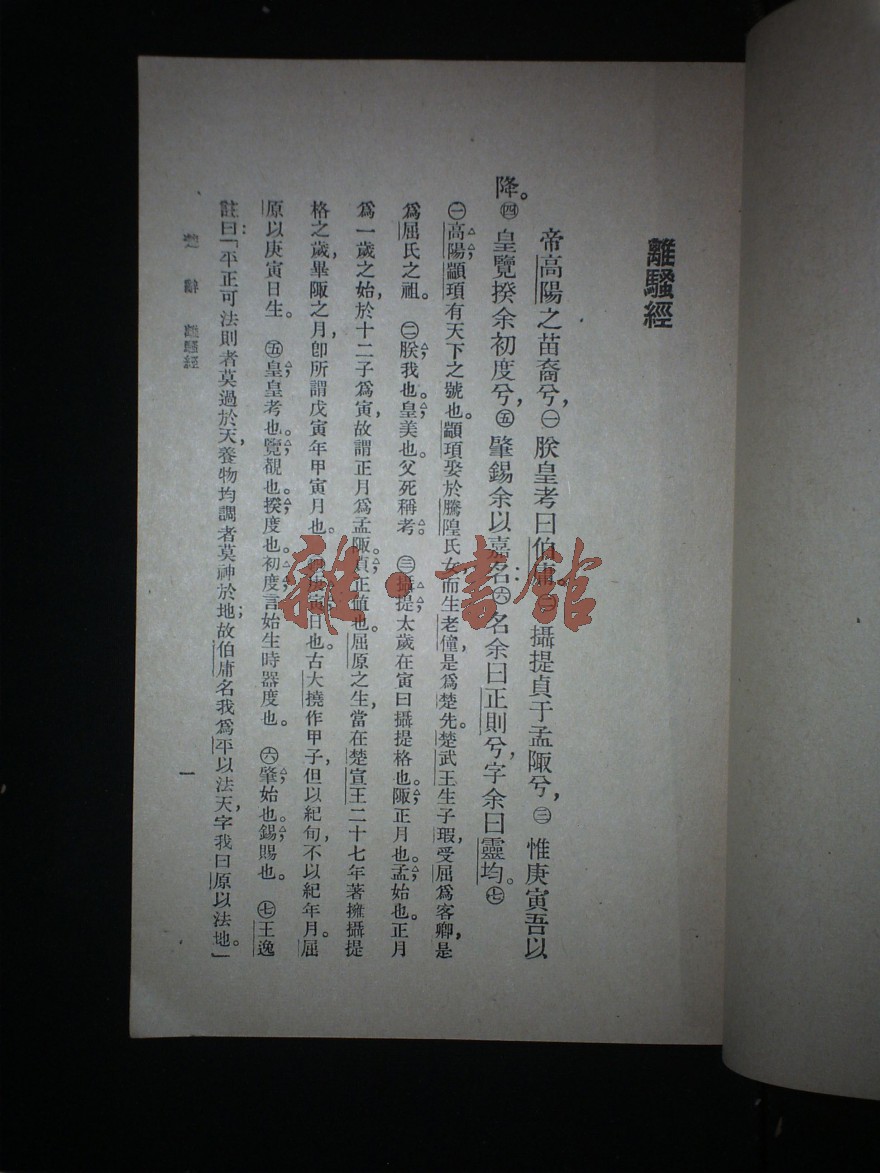 離騷經
帝高陽之苗裔兮，㊀朕皇考曰伯庸。㊁攝提貞于孟陬兮，㊂惟庚寅吾以
降。㊃皇覽揆余初度兮，㊄肇錫余以嘉名：㊅名余曰正則兮，字余曰靈均。㊆
㊀高陽，顓頊有天下之號也。顓頊娶於騰隍氏女而生老僮，是爲楚先。楚武王生子瑕，受屈爲客卿，是
爲屈氏之祖。㊁朕，我也。皇，美也。父死稱考。㊂攝提，太歲在寅曰攝提格也。陬，正月也。孟，始也。正月
爲一歲之始，於十二子爲寅，故謂正月爲孟陬。貞，正也。屈原之生，當在楚宣王二十七年著擁攝提
格之歲，畢陬之月，卽所謂戊寅年甲寅月也。㊃庚寅，日也。古大撓作甲子，但以紀旬，不以紀年月。屈
原以庚寅日生。㊄皇，皇考也。覽，覩也。揆，度也。初度，言始生時器度也。㊅肇，始也。錫，賜也。㊆王逸
註曰：「平正可法則者莫過於天，養物均調者莫神於地；故伯庸名我爲平以法天，字我曰原以法地。」
楚辭 離騷經
一
雜·書館